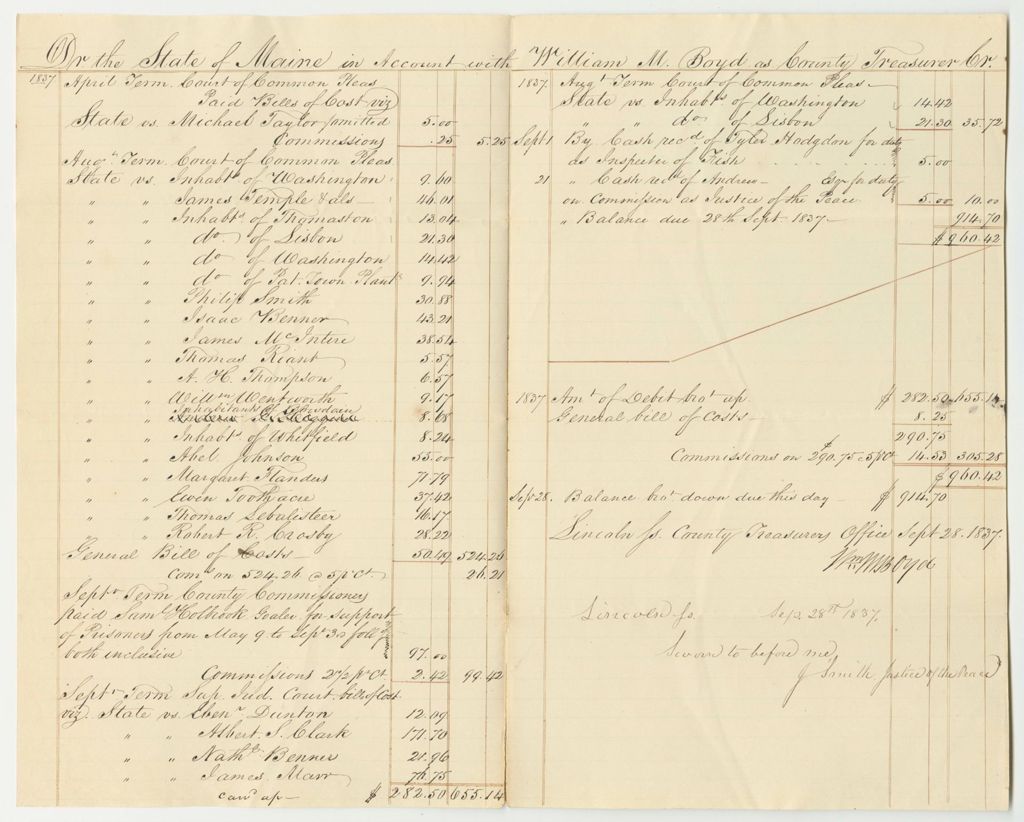 Dr the State of Maine in Account with William M. Boyd as County Treasurer Cr.
1837 April Term Court of Common Pleas
Paid Bills of Cost viz
State vs. Michael Taylor omitted 5.00
Commissions .25 5.25
Augt. Term Court of Common Pleas
State vs. Inhabts of Washington 9.60
" " James Temple & als 46.01
" " Inhabts of Thomaston 13.04
" " do. of Lisbon 21.30
" " do. of Washington 14.42
" " do. of Pat. Town Plant. 9.94
" " Philip Smith 30.88
" " Isaac Benner 43.21
" " James McIntire 38.54
" " Thomas Reant 5.57
" " A. H. Thompson 6.57
" " Willm Wentworth 9.17
" " Inhabitants of 8.18
" " Inhabts of Whitefield 8.24
" " Abel Johnson 55.00
" " Margaret Flanders 71.79
" " Gwen Toothacre 37.42
" " Thomas Lebalisteer 16.17
" " Robert R. Crosby 28.22
General Bill of Costs 50.49 524.26
Coms on 524.26 @ 5 pr Ct. 26.21
Septr Term County Commissioners
paid Saml Holbrook Goaler for support
of Prisoners from May 9 to Sept 3d follg
both inclusive 97.00
Commissions 2 1/2 pr Ct 2.42 99.42
Septr Term Sup. Jud. Court bills of Cost
viz State vs Ebenr Dunton 12.09
" " Albert S. Clark 171.70
" " Nathl Benner 21.96
" " James Marr 76.75
card up $ 282.50 655.14
1837 Augt Term Court of Common Pleas
State vs Inhabts of Washington 14.42
" " do. of Lisbon 21.30 35.72
Sept 1 By Cash recd of Tyler Hodgdon for duty
as Inspector of Fish 5.00
21 " Cash recd of Andrew Esqr for duty
on Commission as Justice of the Peace 5.00 10.00
" Balance due 28th Sept 1837 914.70
$ 960.42
1837 Amt of Debit brot up $ 282.50 655.14
General bill of Costs 8.25
290.75
Commissions on $ 290.75 @ 5 pr Ct 14.53 305.28
$ 960.42
Sept 28. Balance brot down due this day $ 914.70
Lincoln Ss. County Treasurers Office Sept 28. 1837.
Wm M Boyd
Lincoln Ss. Sep. 28th 1837.
Sworn to before me,
J Smith Justice of the Peace